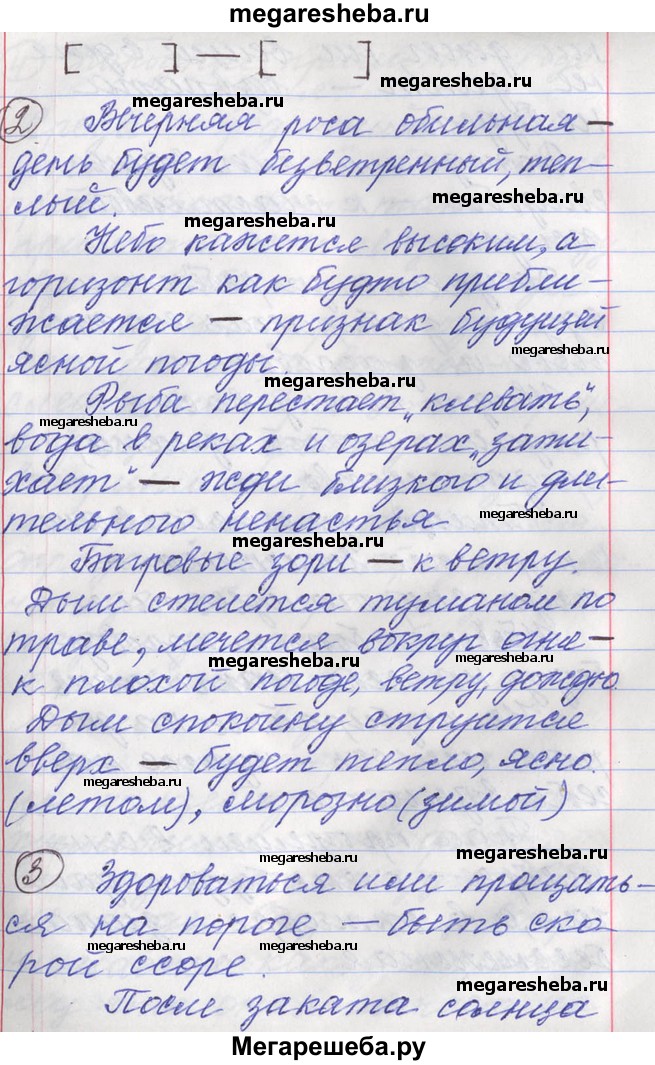 megaresheba.ru
[ ] — [ ]
megaresheba.ru
megaresheba.ru
2 Вечерняя роса обильная —
megaresheba.ru
день будет безветренный, теп-
лый.
megaresheba.ru
megaresheba.ru
Небо кажется высоким, а
горизонт как будто прибли-
жается — признак будущей
megaresheba.ru
ясной погоды.
megaresheba.ru
Рыба перестает „клевать",
megaresheba.ru
вода в реках и озерах „зати-
хает" — жди близкого и дли-
тельного ненастья
megaresheba.ru
megaresheba.ru
Багровые зори — к ветру.
Дым стелется туманом по
траве, мечется вокруг огня —
megaresheba.ru
megaresheba.ru
к плохой погоде, ветру, дождю.
Дым спокойну струится
вверх — будет тепло, ясно.
megaresheba.ru
(летом), морозно (зимой)
megaresheba.ru
megaresheba.ru
3 Здороваться или прощать-
ся на пороге — быть ско
megaresheba.ru
megaresheba.ru
рой ссоре.
megaresheba.ru
После заката солнца
megaresheba.ru
Мегарешеба.ру